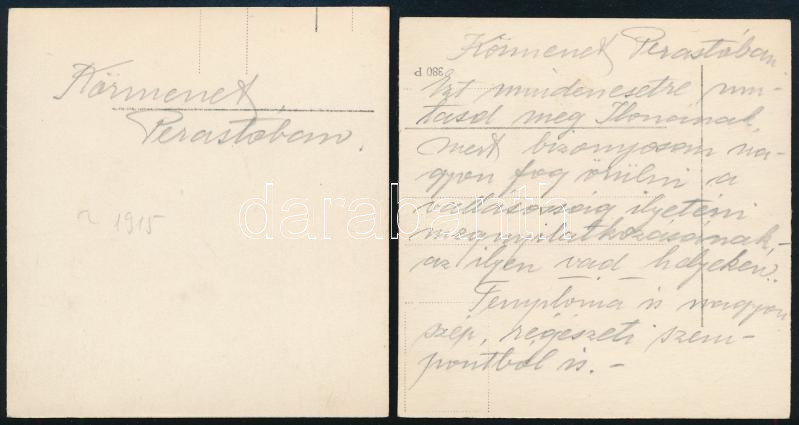 Körmenet
Perastóban.
~ 1915
Körmenet Perastóban.
380 P
Ezt mindenesetre mu-
tasd meg Ilonának,
mert bizonyosan na-
gyon fog örülni a
vallásosság ilyetén
megnyilatkozásának,-
az ilyen vad helyeken.
Temploma is nagyon
szép, régészeti szem-
pontból is. -
darabanth